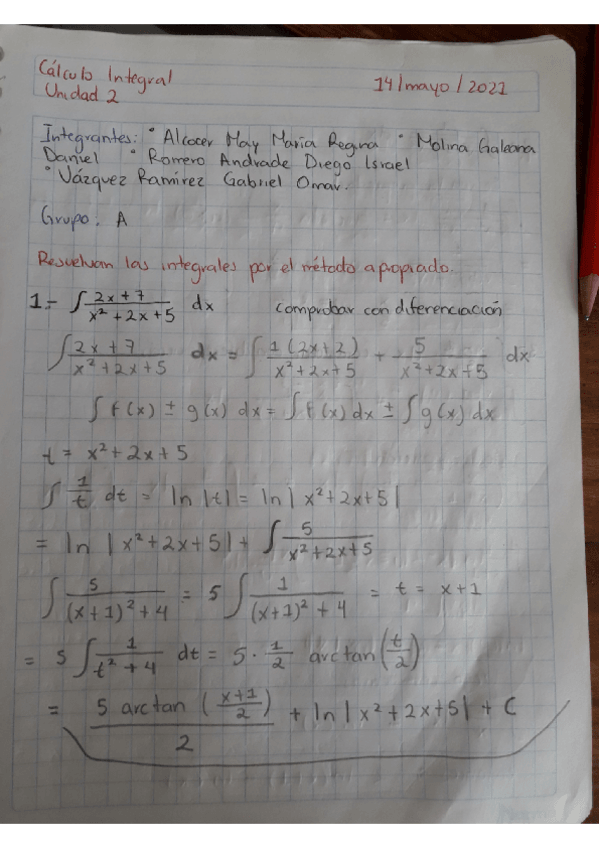 Cálculo Integral
Unidad 2
14/mayo/2021
Integrantes: • Alcocer May María Regina • Molina Galeana
Daniel • Romero Andrade Diego Israel
• Vázquez Ramírez Gabriel Omar.
Grupo. A
Resuelvan las integrales por el método apropiado.
1.- ∫ (2x+7)/(x²+2x+5) dx comprobar con diferenciación
∫ (2x+7)/(x²+2x+5) dx = ∫ 1(2x+2)/(x²+2x+5) + 5/(x²+2x+5) dx
∫ f(x) ± g(x) dx = ∫ f(x) dx ± ∫ g(x) dx
t = x²+2x+5
∫ 1/t dt = ln |t| = ln | x²+2x+5|
= ln | x²+2x+5| + ∫ 5/(x²+2x+5)
∫ 5/((x+1)²+4) = 5 ∫ 1/((x+1)²+4) = t = x+1
= 5 ∫ 1/(t²+4) dt = 5 · 1/2 arctan(t/2)
= (5 arctan ((x+1)/2))/2 + ln | x²+2x+5| + C